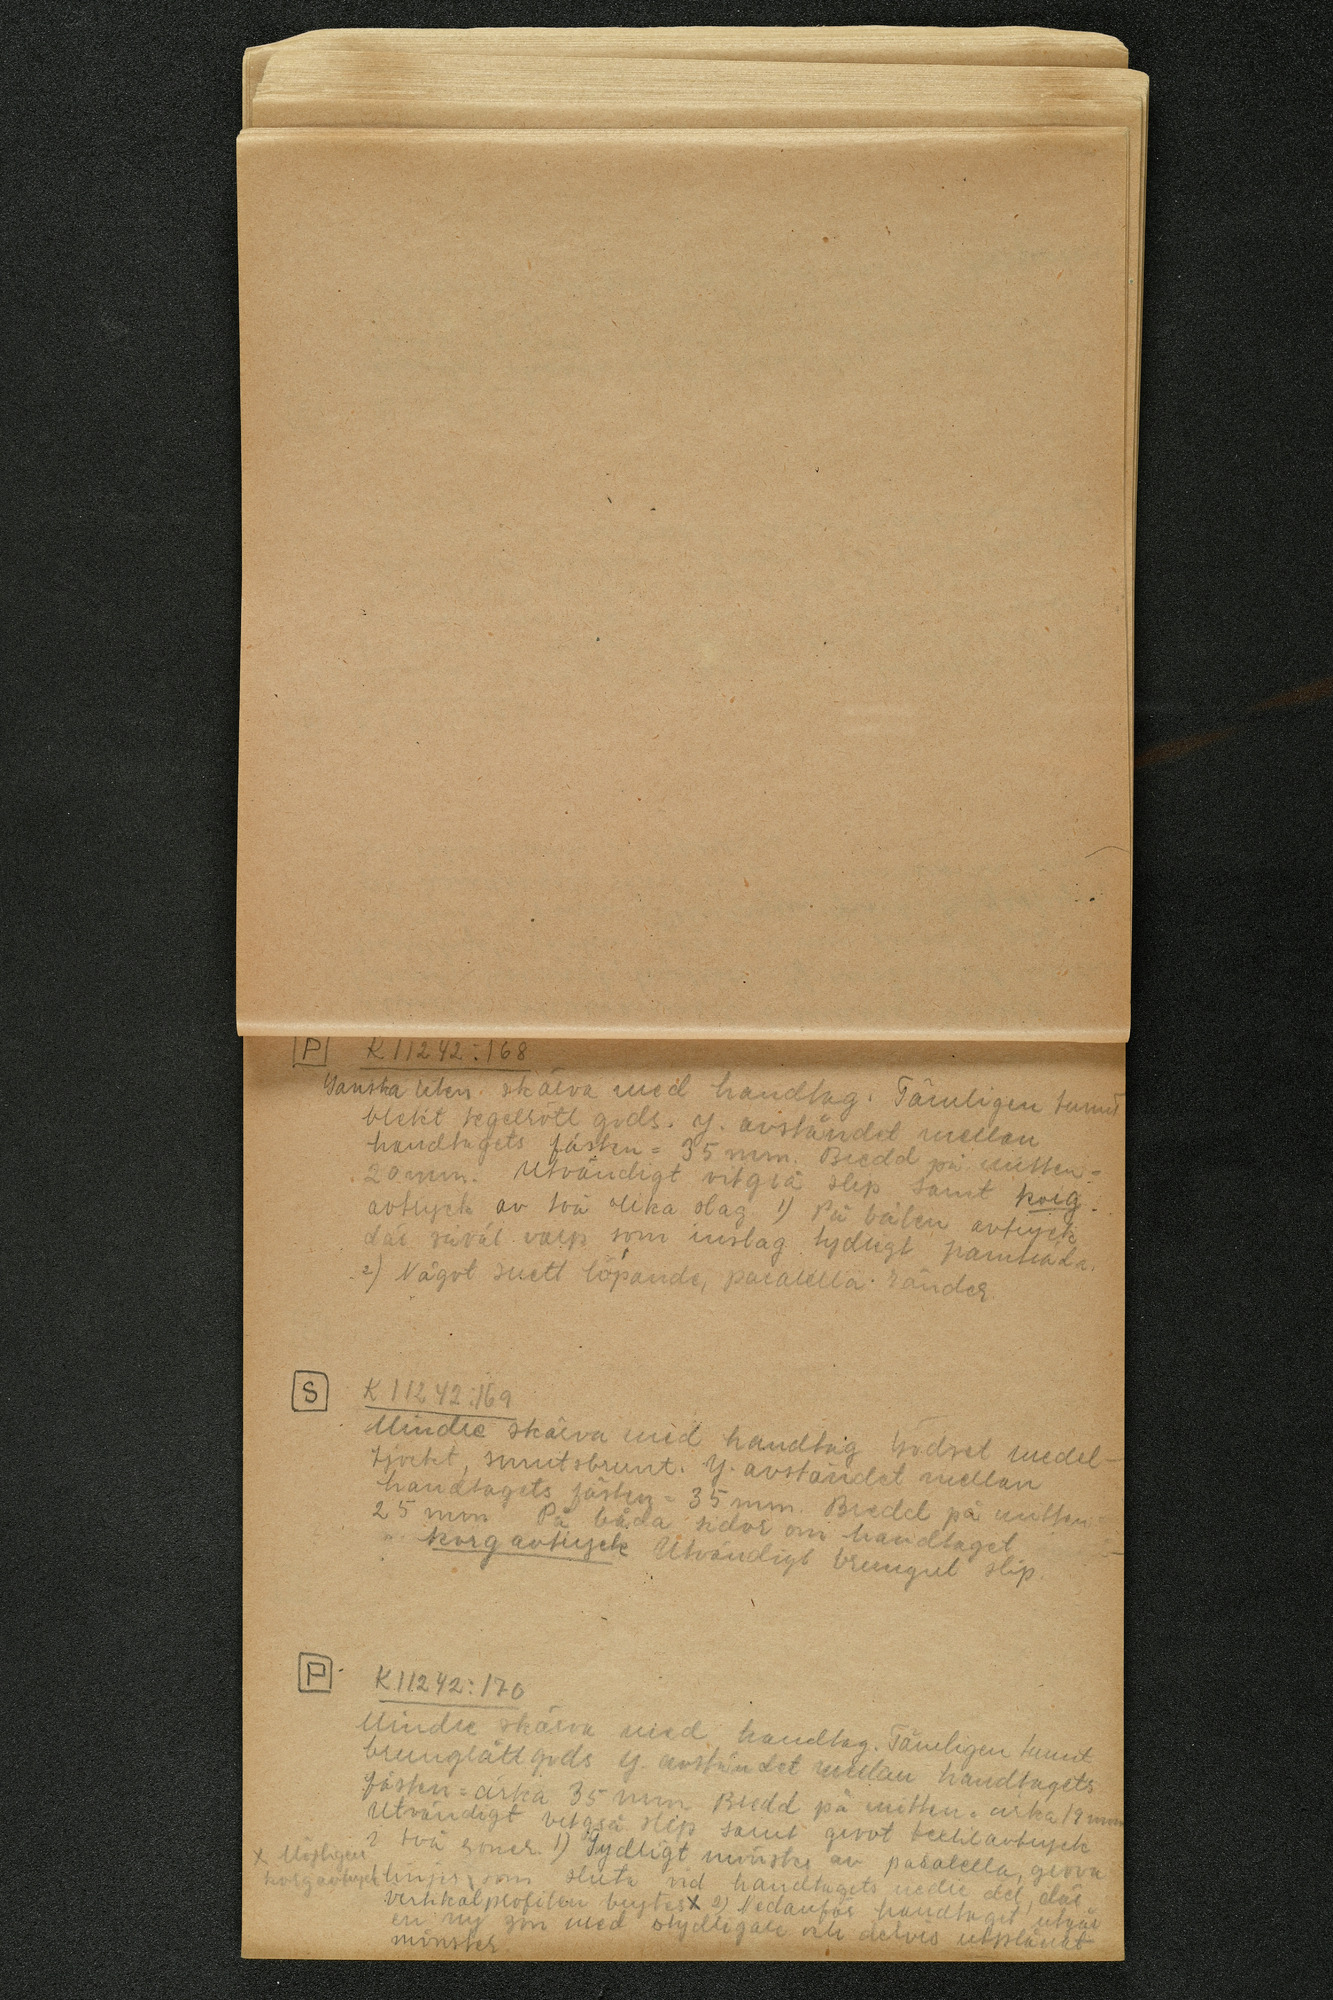 P K 11242:168
Ganska liten skärva med handtag. Tämligen tunnt
blekt tegelrött gods. Y. avståndet mellan
handtagets fästen = 35 mm. Bredd på mitten =
20 mm. Utvändigt vitgrå slip samt korg-
avtryck av två olika slag 1) På bålen avtryck
där såväl varp som inslag tydligt framträda.
2) Något snett löpande, paralella ränder.
S K 11242:169
Mindre skärva med handtag Godset medel-
tjockt, smutsbrunt. Y. avståndet mellan
handtagets fästen = 35 mm. Bredd på mitten
25 mm På båda sidor om handtaget
korgavtryck Utvändigt brungul slip.
P K 11242:170
Mindre skärva med handtag. Tämligen tunnt
brungrått gods Y. avståndet mellan handtagets
fästen = cirka 35 mm Bredd på mitten = cirka 19 mm
Utvändigt vitgrå slip samt grovt textilavtryck
i två zoner. 1) Tydligt mönster av paralella, grova
x Möjligen
korgavtryck
linjer som sluta vid handtagets nedre del, där
vertikalprofilen brytes x 2) Nedanför handtaget utgår
en ny zon med otydligare och delvis utplånat
mönster.